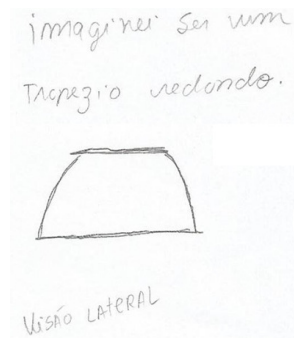 imaginei ser um
Trapezio redondo.
Visão LATERAL